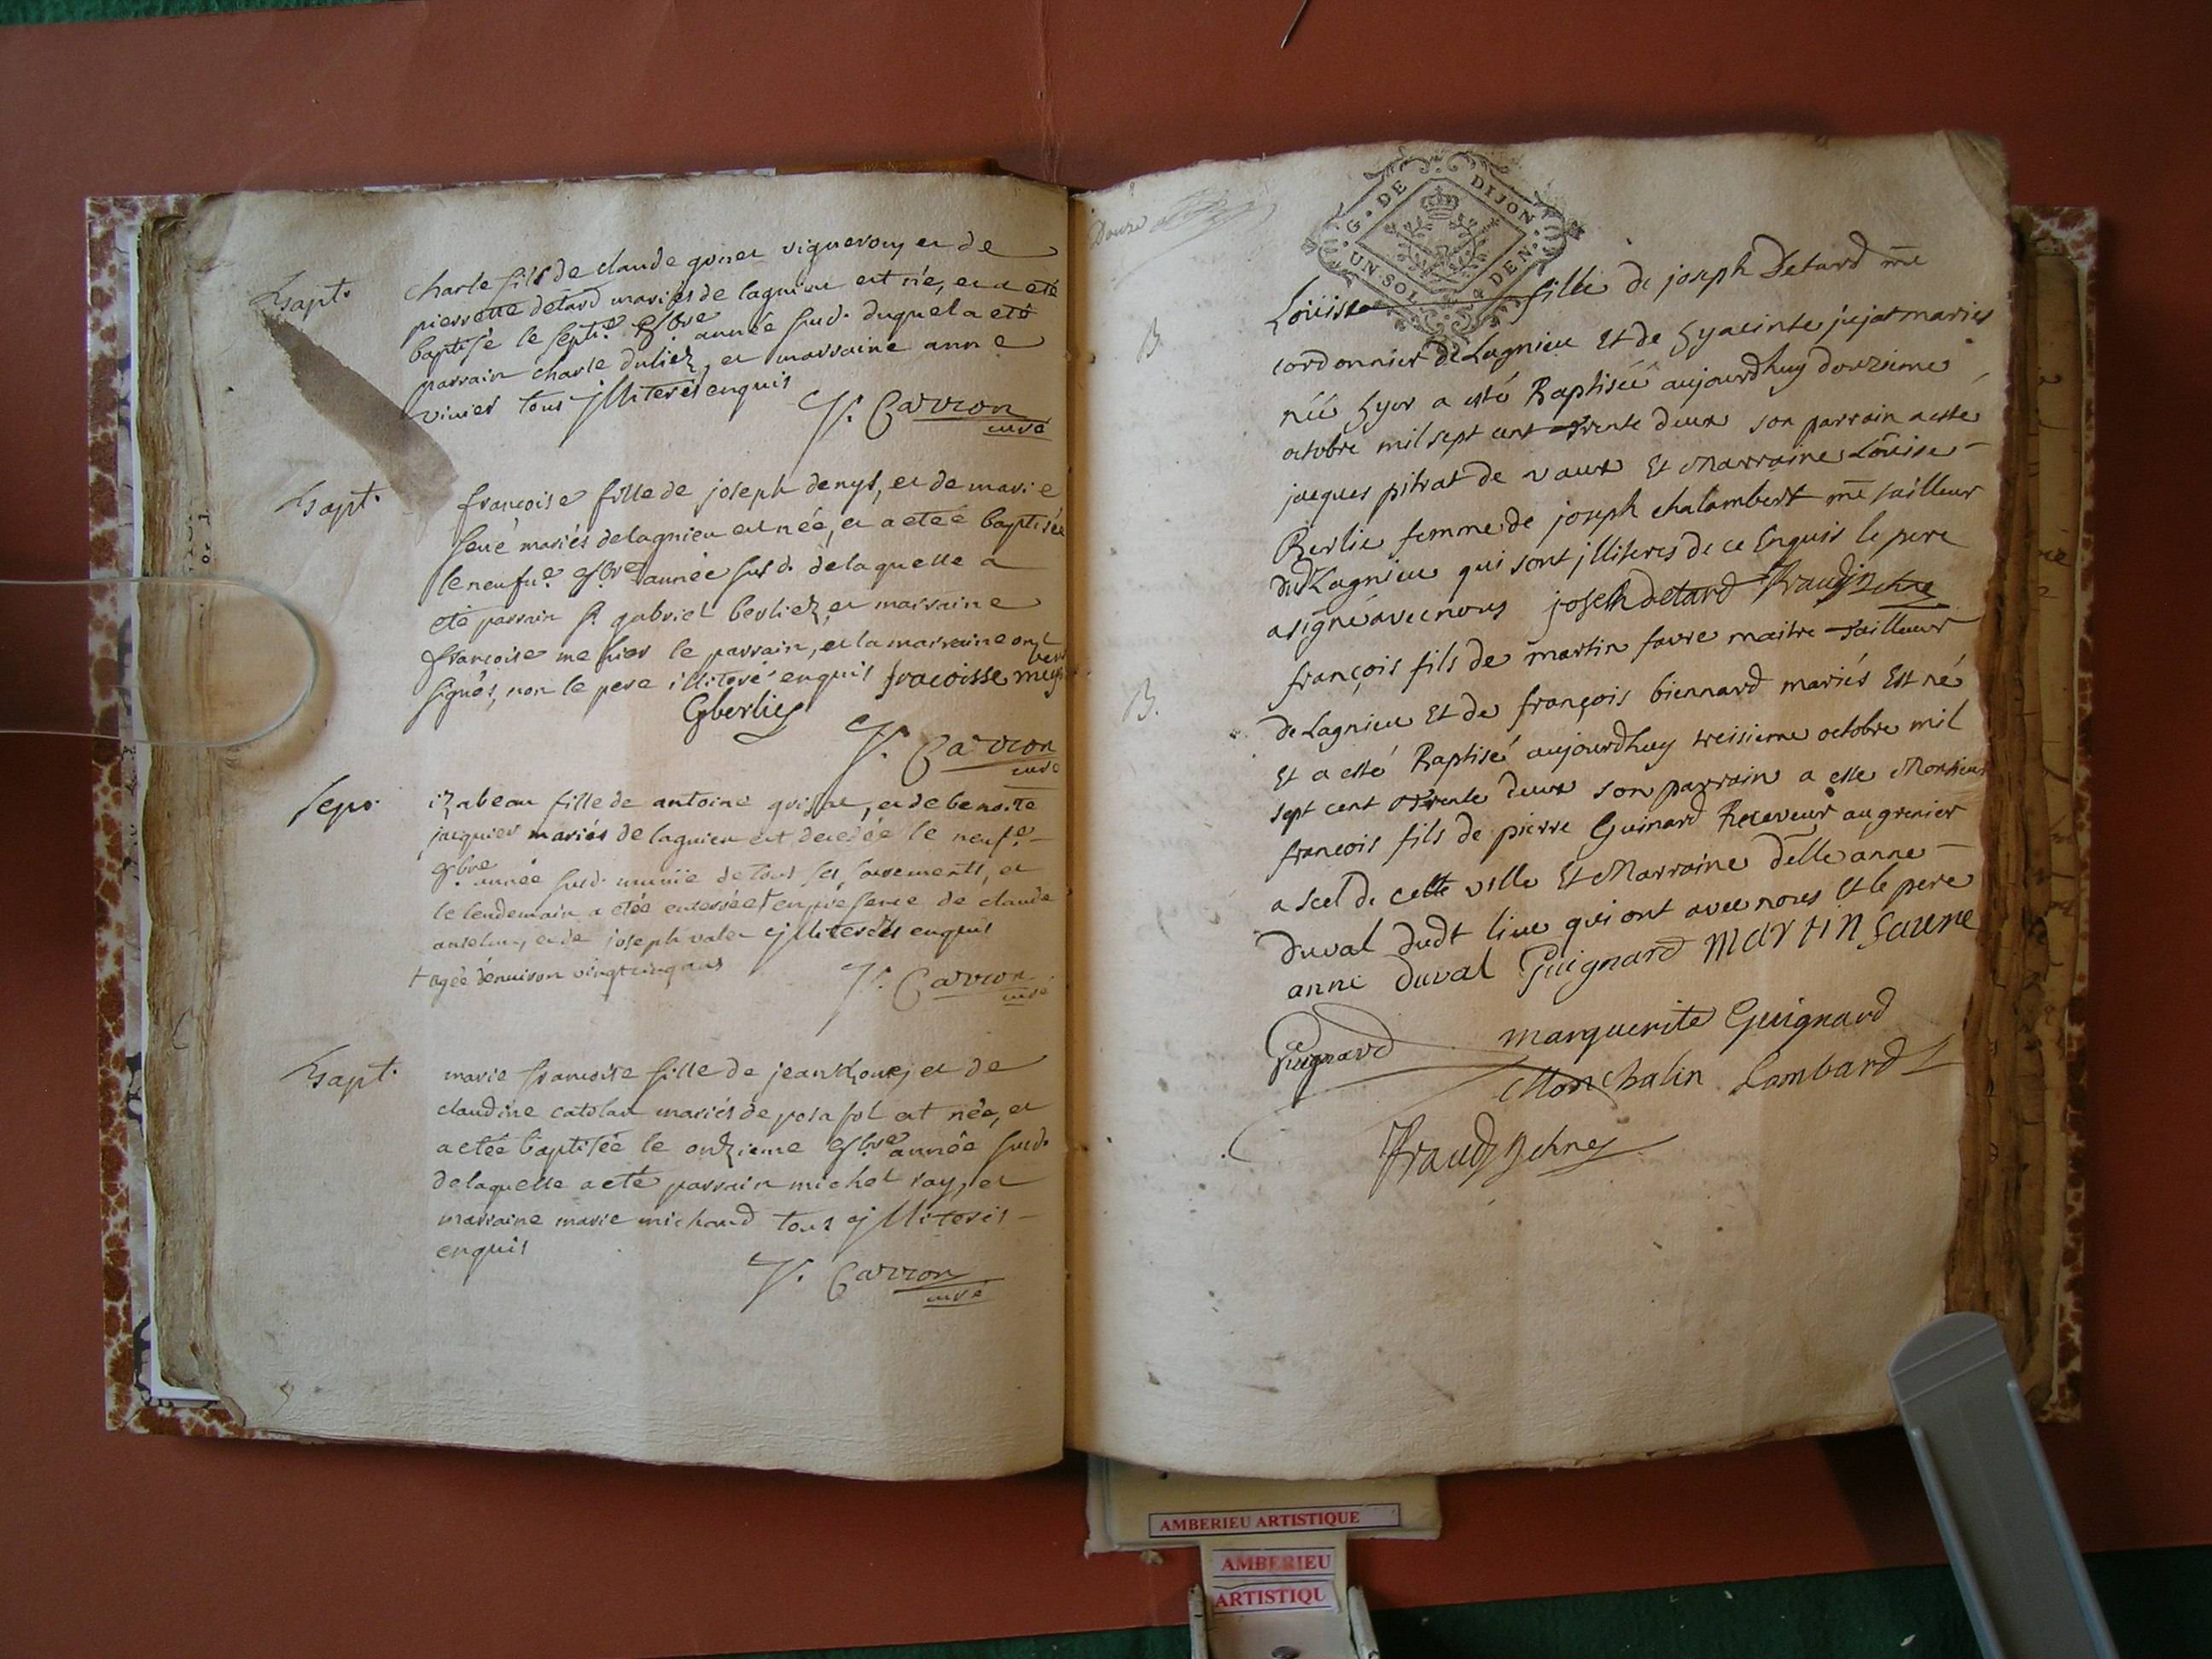 Bapt.
charle fils de claude goiset vigneron, et de
pierrette detard mariés de lagnieu est né, et a eté
baptisé le septe. 8bre. année susd. duquel a eté
parrain charle duliez, et marraine anne
vinier tous jlliterés enquis
J. Carron
curé
Bapt.
francoise fille de joseph denys, et de marie
mariés de lagnieu est née, et a eteé baptisée
le neufve. 8bre année susd. de laquelle a
eté parrain sr. gabriel berliez, et marraine
francoise me hier le parrain, et la marraine ont
signés, non le pere illiteré enquis fracoisse mey
Gberliez
J. Carron
curé
sepr.
izabeau fille de antoine et de benoite
jacquier mariés de lagnieu est decedée le neufe.
8bre. année susd. munie de tous ses sacrements, et
le lendemain a etée enterrée + en presence de claude
anselme, et de joseph valet jlliterés enquis
+ agée denviron vingt cinq ans
J. Carron
curé
Bapt.
marie francoise fille de jean et de
claudine catolan mariés de posafol est née, et
a etée baptisée le onzieme 8bre année susd.
de laquelle a eté parrain michel ray, et
marraine marie michaud tous jlliterés
enquis
J. Carron
curé
Douze
G. DE DIJON
UN SOL 4 DEN.
B.
Loüise fille de joseph Detard me
cordonnier de Lagnieu Et de hyacinte jujat mariés
néé hyer a esté Baptiséé aujourdhuy douzieme
octobre mil sept cent trente deux son parrain a esté
jacques pitrat de vaux Et Marraine Loüise
Berlie femme de joseph chalambert me tailleur
dud Lagnieu qui sont jlliteres de ce Enquis le pere
a signé avec nous joseph detard
B.
françois fils de martin favre maitre tailleur
de Lagnieu Et de françois biennard mariés Est né
Et a esté Baptisé aujourdhuy treisieme octobre mil
sept cent trente deux son parrain a este Monsieur
francois fils de pierre Guinard Receveur au grenier
a scel de cette ville Et Marraine delle anne
Duval dudt lieu qui ont avec nous Et le pere
anne Duval Guignard Martin faure
Guignard
marguerite Guignard
Monchalin Lombard
AMBERIEU ARTISTIQUE
AMBERIEU
ARTISTIQU